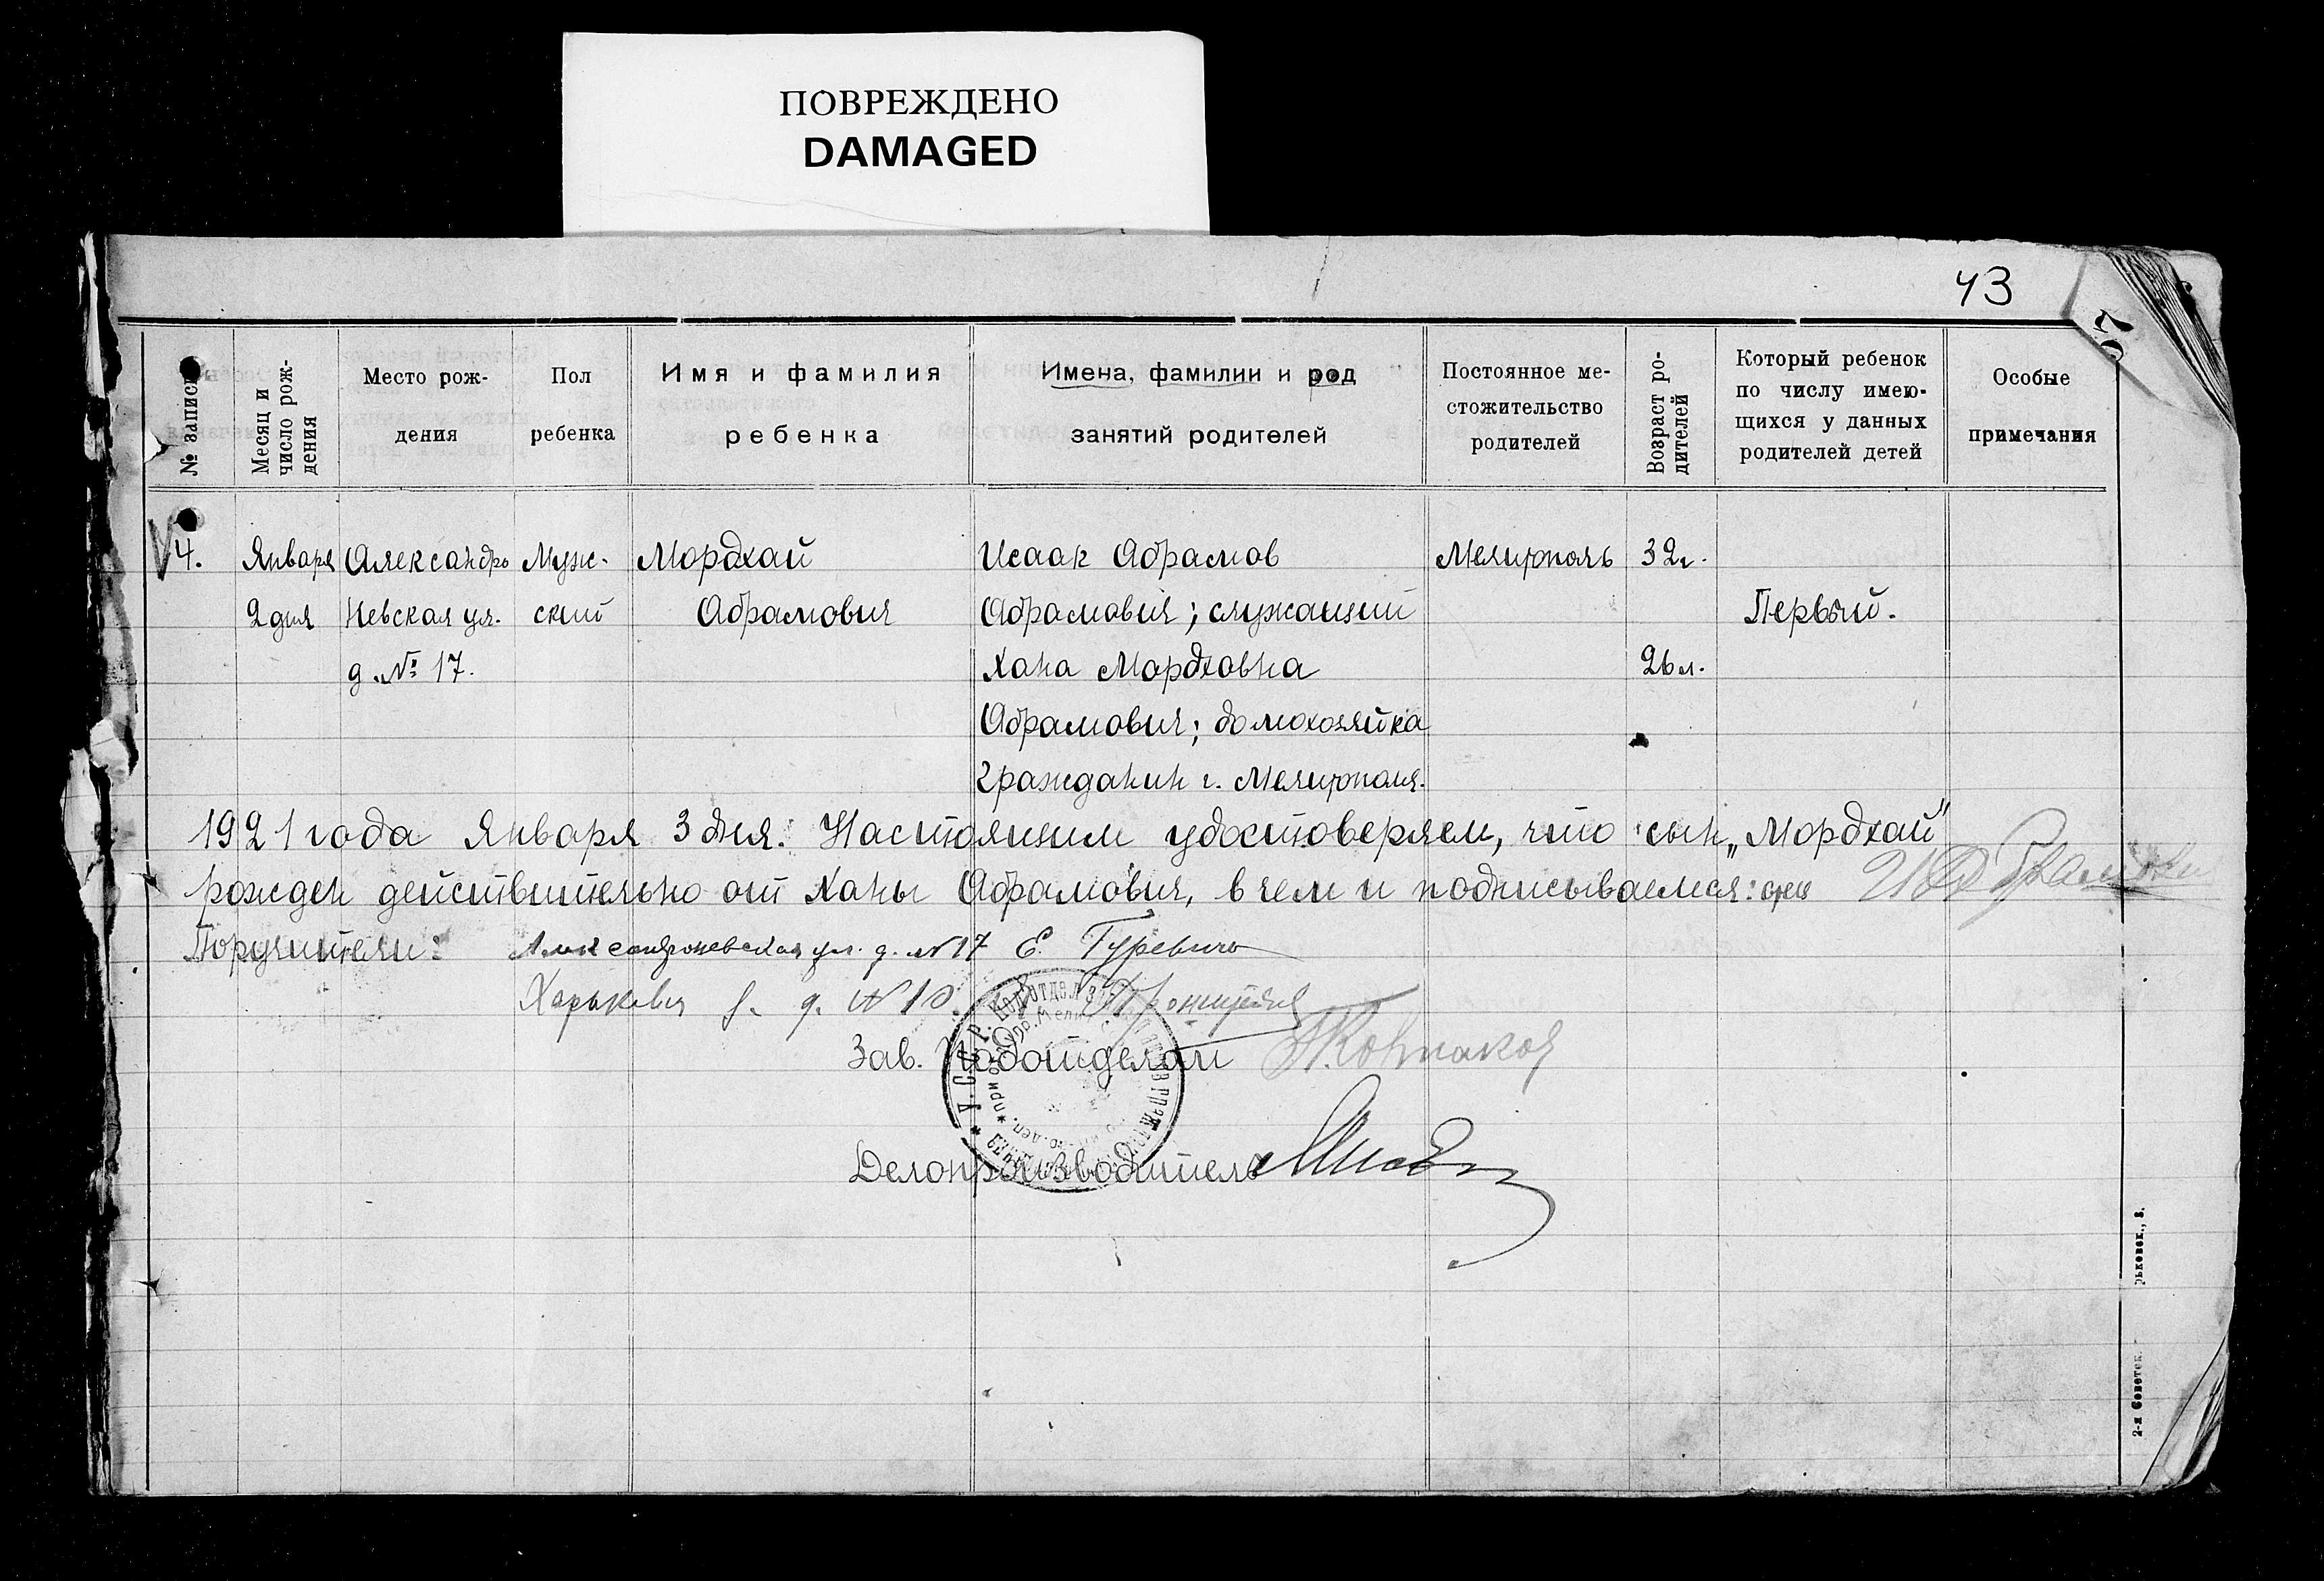 ПОВРЕЖДЕНО
DAMAGED
43
№ записи
Месяц и число рождения
Место рож-
дения
Пол
ребенка
Имя и фамилия
ребенка
Имена, фамилии и род
занятий родителей
Постоянное ме-
стожительство
родителей
Возраст ро-
дителей
Который ребенок
по числу имею-
щихся у данных
родителей детей
Особые
примечания
4. Января Александро Муж- Мордхай Исаак Абрамов Мелитополь 32 г.
2 дня Невская ул. ский Абрамович Абрамович; служащий Первый.
д. № 17. Хана Мордховна 26 л.
Абрамович; домохозяйка
Гражданин г. Мелитополя.
1921 года Января 3 дня. Настоящим удостоверяем, что сын „Мордхай"
рожден действительно от Ханы Абрамович, в чем и подписываемся:
Поручители: Александроневская ул. д. № 17 Е. Гуревич
Харьковск д. № 10.
Зав. Подотделом
Делопроизводитель
2-я Советск.